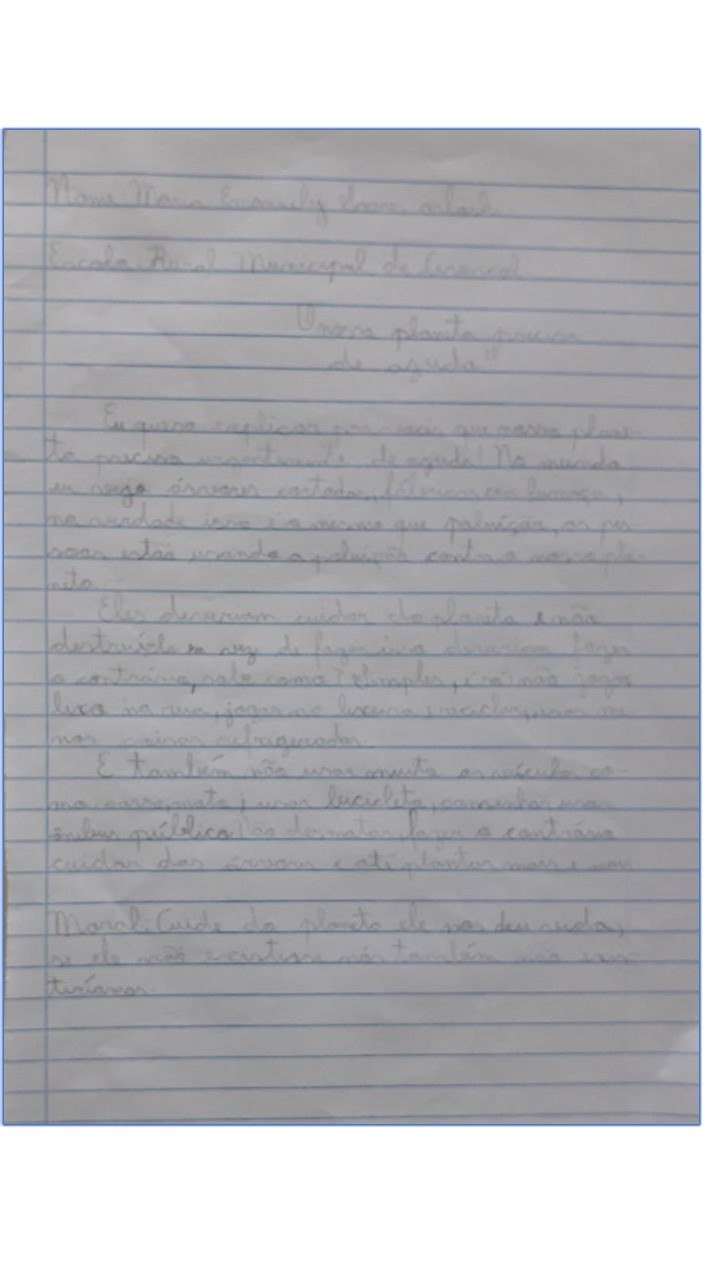 Nome: Maria
Escola Rural Municipal de
nosso planeta precisa
de ajuda"
Eu quero explicar pra vocês que nosso plane-
ta precisa urgentemente de ajuda! No mundo
eu vejo árvores cortadas, fábricas com fumaça,
na verdade isso é o mesmo que poluição, as pes-
soas estão usando a poluição contra o nosso pla-
neta.
Eles deveriam cuidar do planeta e não
destruí-lo vez de fazer isso deveriam fazer
o contrário, sabe como? Simples, é só não jogar
lixo na rua, jogar na lixeira e reciclar, usar me-
nos refrigerador.
E também não usar muito os veículo co-
mo carro, moto, usar bicicleta, caminhar
ônibus público! desmatar, fazer o contrário
cuidar das árvores e até plantar mais e mais
Moral: Cuide do planeta ele nos deu vida,
se ele não existisse nós também não exis-
tiríamos.